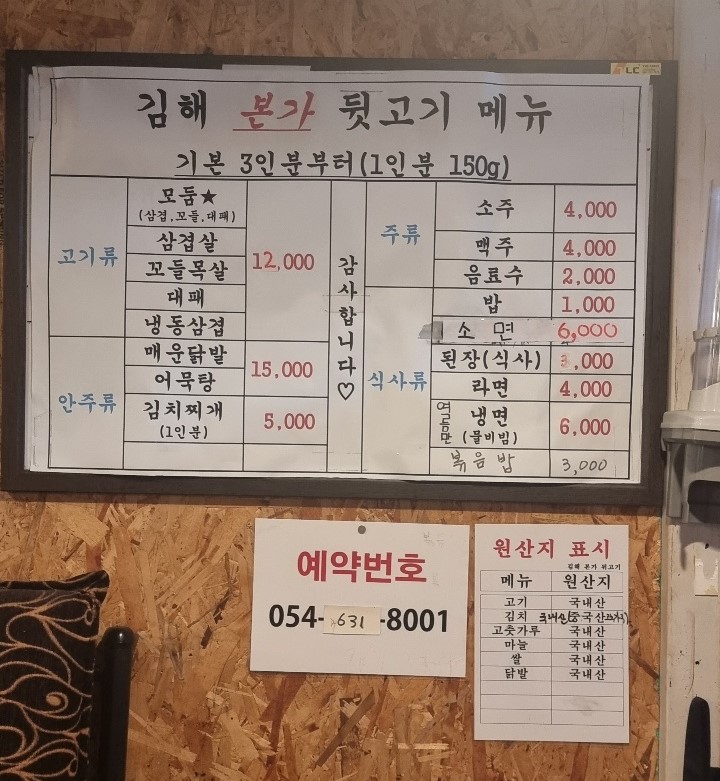 LC
김해 본가 뒷고기 메뉴
기본 3인분부터(1인분 150g)
고기류
모둠★
(삼겹,꼬들,대패)
삼겹살
꼬들목살
대패
냉동삼겹
12,000
안주류
매운닭발
어묵탕
15,000
김치찌개
(1인분)
5,000
감사합니다♡
주류
소주 4,000
맥주 4,000
음료수 2,000
식사류
밥 1,000
소면 6,000
된장(식사) 3,000
라면 4,000
여름만
냉면
(물비빔)
6,000
볶음밥 3,000
예약번호
054-631-8001
원산지 표시
김해 본가 뒤고기
메뉴 원산지
고기 국내산
김치
고춧가루 국내산
마늘 국내산
쌀 국내산
닭발 국내산